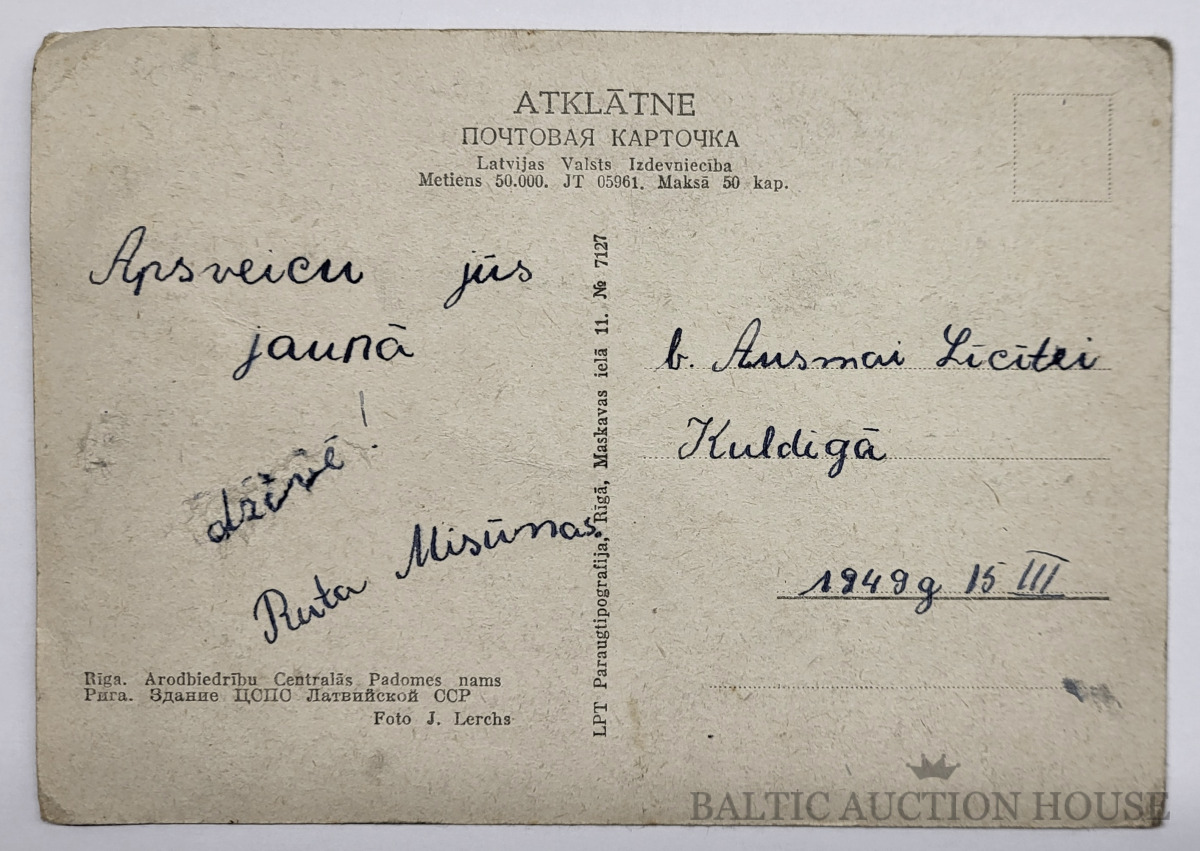 ATKLĀTNE
ПОЧТОВАЯ КАРТОЧКА
Latvijas Valsts Izdevniecība
Metiens 50.000. JT 05961. Maksā 50 kap.
Apsveicu jūs
jaunā
dzīvē!
Ruta Misūnas.
Rīga. Arodbiedrību Centralās Padomes nams
Рига. Здание ЦСПС Латвийской ССР
Foto J. Lerchs
LPT Paraugtipografija, Rīgā, Maskavas ielā 11. № 7127
b. Ausmai Līcītei
Kuldīgā
1949g 15 III
BALTIC AUCTION HOUSE